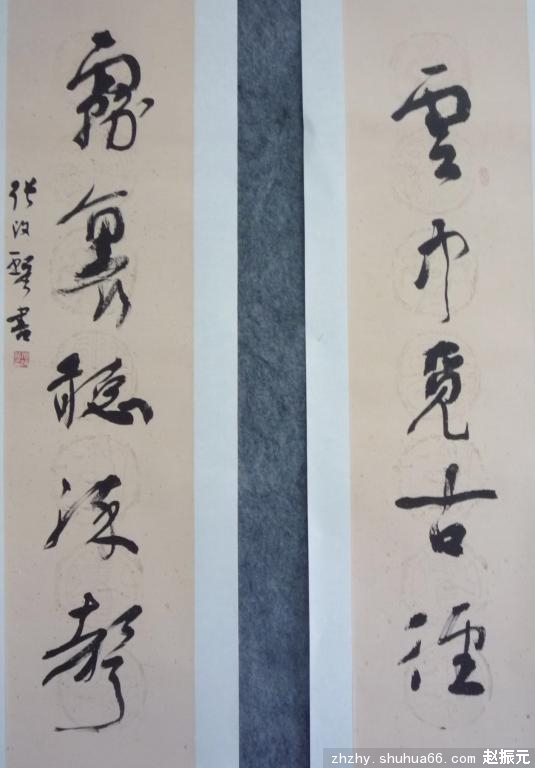 雲中覓古徑
霧裏聽深聲
張改琴書
zhzhy.shuhua66.com 赵振元